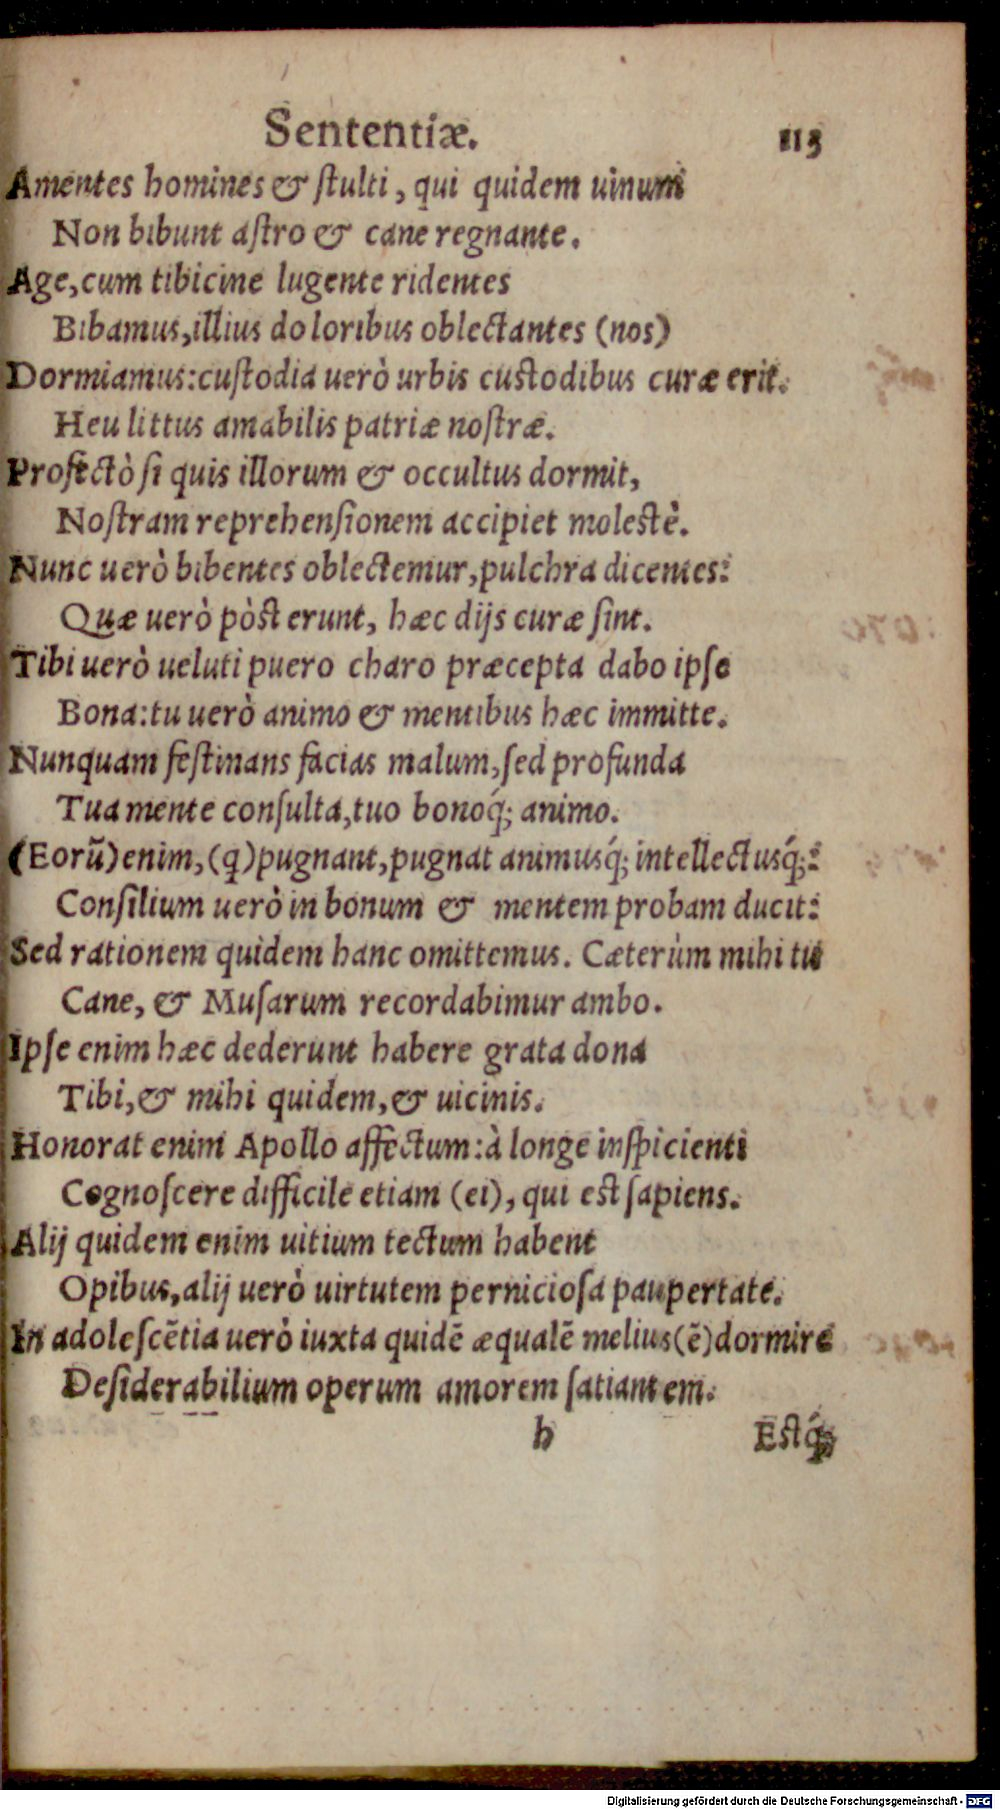 Sententiæ. 113
Amentes homines & ſtulti, qui quidem uinum
Non bibunt aſtro & cane regnante.
Age, cum tibicine lugente ridentes
Bibamus, illius doloribus oblectantes (nos)
Dormiamus: cuſtodia uerò urbis custodibus curæ erit.
Heu littus amabilis patriæ noſtræ.
Profectò ſi quis illorum & occultus dormit,
Noſtram reprehenſionem accipiet molestè.
Nunc uerò bibentes oblectemur, pulchra dicentes:
Quæ uerò pòst erunt, hæc dijs curæ ſint.
Tibi uerò ueluti puero charo præcepta dabo ipſe
Bona: tu uerò animo & mentibus hæc immitte.
Nunquam feſtinans facias malum, ſed profunda
Tua mente conſulta, tuo bonoq́; animo.
(Eorũ) enim, (q) pugnant, pugnat animusq́; intellectusq́;:
Conſilium uerò in bonum & mentem probam ducit:
Sed rationem quidem hanc omittemus. Cæterùm mihi tu
Cane, & Muſarum recordabimur ambo.
Ipſe enim hæc dederunt habere grata dona
Tibi, & mihi quidem, & uicinis.
Honorat enim Apollo affectum: à longe inſpicienti
Cognoſcere difficile etiam (ei), qui est ſapiens.
Alij quidem enim uitium tectum habent
Opibus, alij uerò uirtutem pernicioſa paupertate.
In adoleſcẽtia uerò iuxta quidẽ æqualẽ melius (ẽ) dormire
Deſiderabilium operum amorem ſatiantem.
h Estq́;
Digitalisierung gefördert durch die Deutsche Forschungsgemeinschaft - DFG